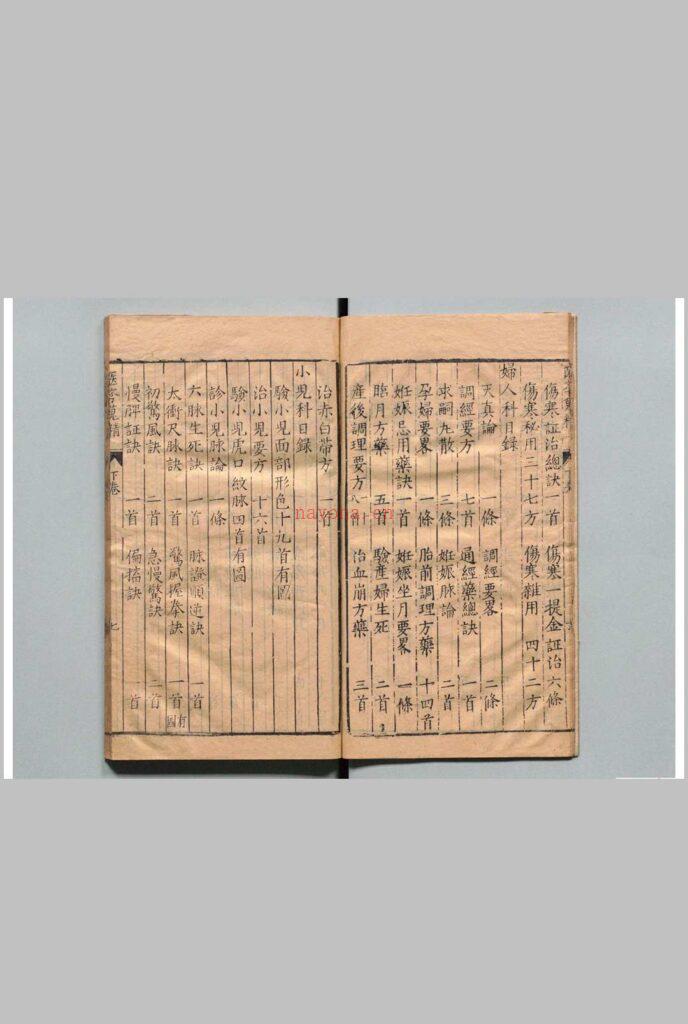 傷寒証治總訣一首 傷寒一提金証治六條
傷寒秘用三十七方 傷寒雜用 四十二方
婦人科目錄
天真論 一條 調經要畧 二條
調經要方 七首 通經藥總訣 一首
求嗣丸散 三條 妊娠脉論 二首
孕婦要畧 一條 胎前調理方藥 十四首
妊娠忌用藥訣 一首 妊娠坐月要畧 一條
臨月方藥 五首 驗產婦生死 二首
產後調理要方 治血崩方藥 三首
治赤白帶方 一首
小児科目錄
驗小児面部形色十九首有圖
治小児要方 十六首
驗小児虎口紋脉四首有圖
診小児脉論 一條
六脉生死訣 一首 脉證順逆訣 一首
太衝尺脉訣 一首 驚風握拳訣 一首有圖
初驚風訣 二首 急慢驚訣 二首
慢脾証訣 一首 偏搐訣 一首
下卷
七
nayona.cn